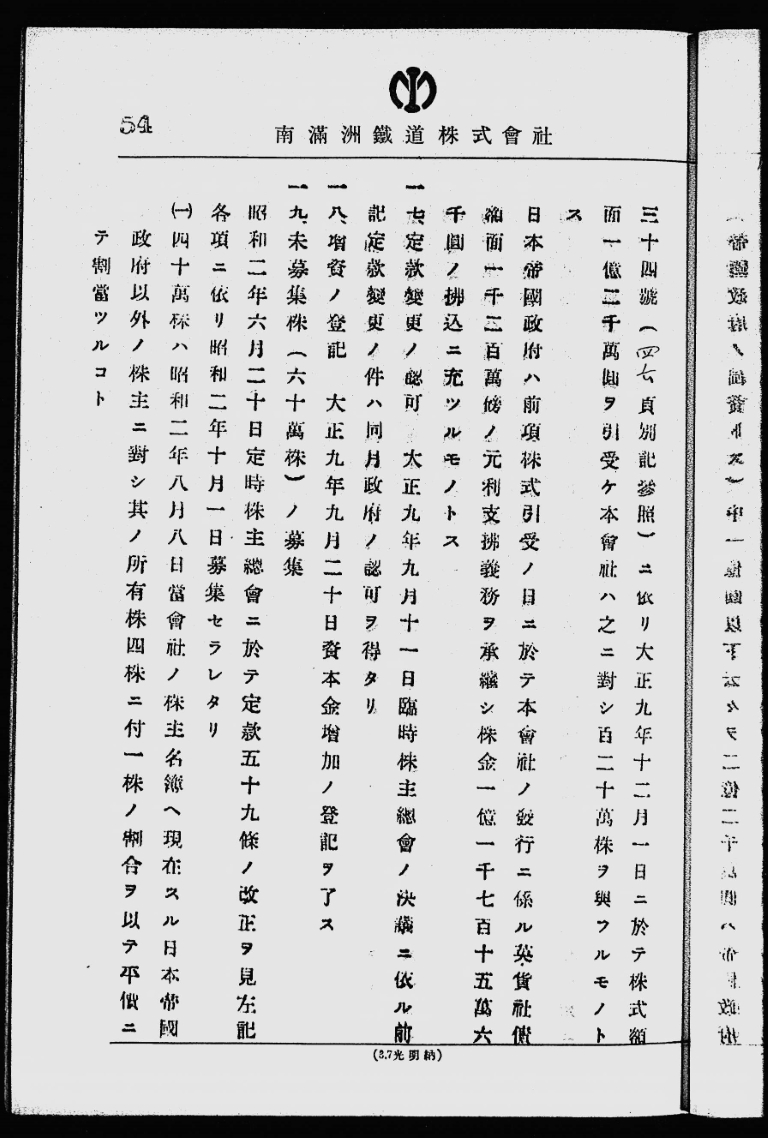 54
南滿洲鐵道株式會社
三十四號(四七頁別記參照)ニ依リ大正九年十二月一日ニ於テ株式額
面一億二千萬圓ヲ引受ケ本會社ハ之ニ對シ百二十萬株ヲ與フルモノト
ス
日本帝國政府ハ前項株式引受ノ日ニ於テ本會社ノ發行ニ係ル英貨社債
額面一千二百萬磅ノ元利支拂義務ヲ承繼シ株金一億一千七百十五萬六
千圓ノ拂込ニ充ツルモノトス
一七、定款變更ノ認可 大正九年九月十一日臨時株主總會ノ決議ニ依ル前
記定款變更ノ件ハ同月政府ノ認可ヲ得タリ
一八、增資ノ登記 大正九年九月二十日資本金增加ノ登記ヲ了ス
一九、未募集株(六十萬株)ノ募集
昭和二年六月二十日定時株主總會ニ於テ定款五十九條ノ改正ヲ見左記
各項ニ依リ昭和二年十月一日募集セラレタリ
㈠四十萬株ハ昭和二年八月八日當會社ノ株主名簿ヘ現在スル日本帝國
政府以外ノ株主ニ對シ其ノ所有株四株ニ付一株ノ割合ヲ以テ平價ニ
テ割當ツルコト
(3.7光明納)